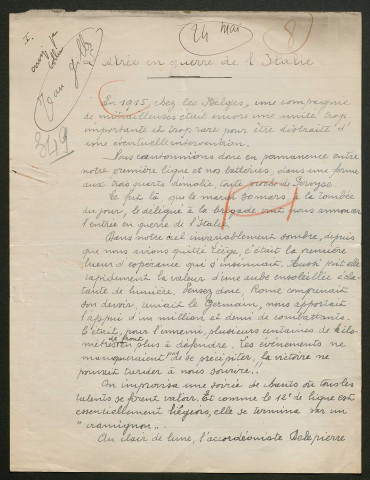 I.
24 mai
8
349
Entrée en guerre de l'Italie
En 1915, chez les Belges, une compagnie
de mitrailleuses était encore une unité trop
importante et trop rare pour être distraite d'une
éventuelle intervention.
Nous cantonnions donc en permanence entre
notre première ligne et nos batteries, dans une ferme
aux trois quarts démolie, toute proche de Pervyse.
Ce fut là que le mardi à la tombée
du jour, le délégué à la brigade vint nous annoncer
l'entrée en guerre de l'Italie.
Dans notre ciel invariablement sombre, depuis
que nous avions quitté Liège, c'était la première
lueur d'espérance qui s'insinuait. Aussi prit elle
rapidement la valeur d'une aube ensoleillée écla-
tante de lumière. Pensez donc, Rome comprenait
son devoir, le Germain, nous apportait
l'appui d'un million et demi de combattants.
C'était, pour l'ennemi, plusieurs centaines de kilo-
mètres de front en plus à défendre. Les événements ne
manqueraient pas de se précipiter, la victoire ne
pouvait tarder à nous sourire!!
On improvisa une soirée de chants où tous les
talents se firent valoir. Et comme le 12e de ligne est
essentiellement liégeois, elle se termina par un
"cramignon".
Au clair de lune, l'accordéoniste Delepierre